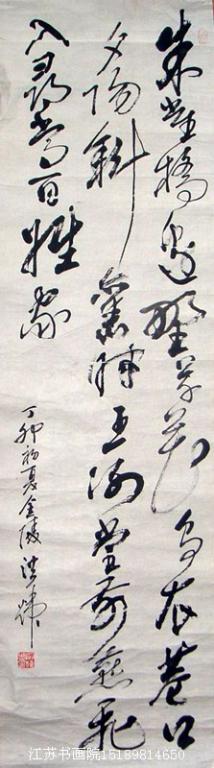 朱雀橋邊野草花烏衣巷口
夕陽斜舊時王謝堂前燕飛
入尋常百姓家
丁卯初夏金陵洪
江苏书画院15189814650